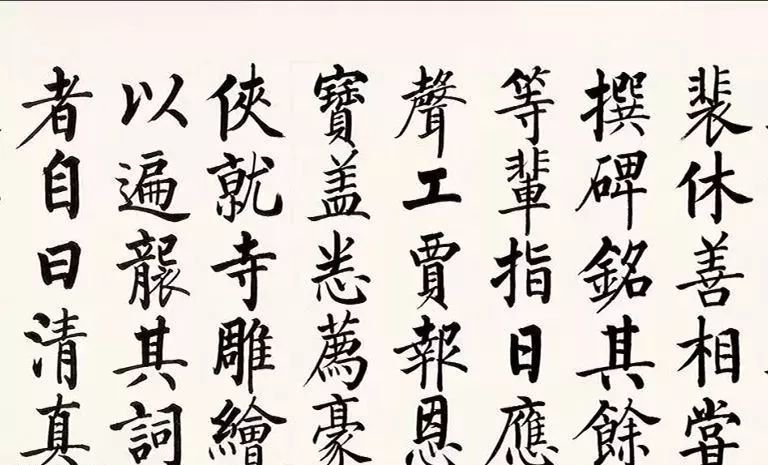 裴休善相嘗
撰碑銘其餘
等輩指日應
聲工賈報恩
寶盖悉薦豪
俠就寺雕繪
以遍襲其詞
者自曰清真